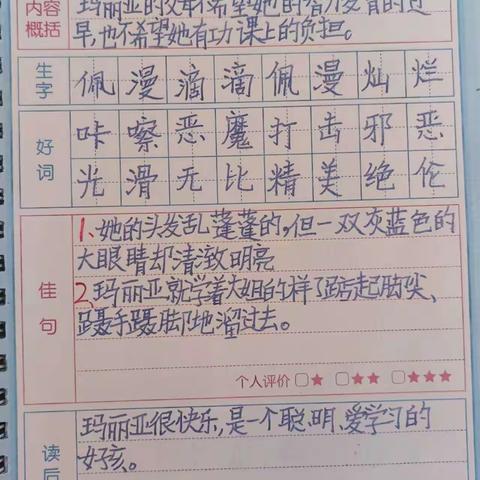 内容概括
玛丽亚的父母不希望她的智力发育的过
早,也不希望她有功课上的负担。
生字
佩漫滴滴佩漫灿烂
好词
咔嚓恶魔打击邪恶
光滑无比精美绝伦
佳句
1、她的头发乱蓬蓬的,但一双灰蓝色的
大眼睛却清澈明亮
2、玛丽亚就学着大姐的样子踮起脚尖、
蹑手蹑脚地溜过去。
个人评价 □★ □★★ □★★★
读后
玛丽亚很快乐,是一个聪明、爱学习的
好孩。